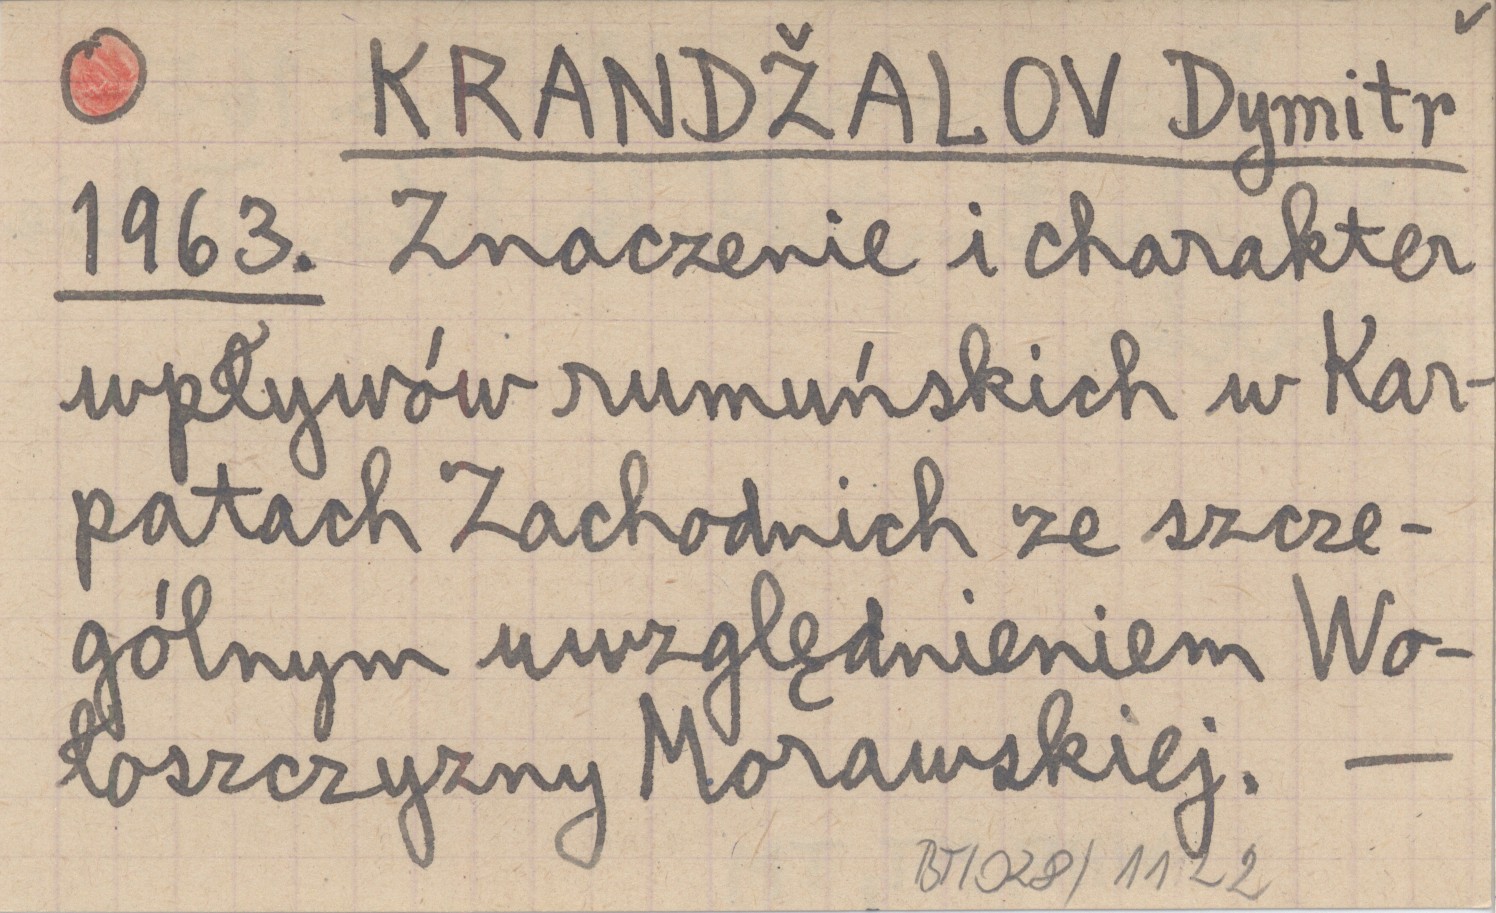 KRANDŽALOV Dymitr
1963. Znaczenie i charakter
wpływów rumuńskich w Kar-
patach Zachodnich ze szcze-
gólnym uwzględnieniem Wo-
łoszczyzny Morawskiej. —
BT/028/1122